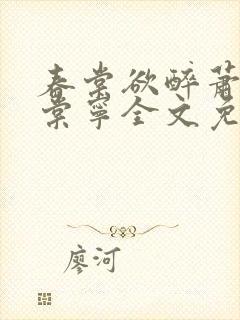 春棠欲醉萧
棠宁全文免
廖河